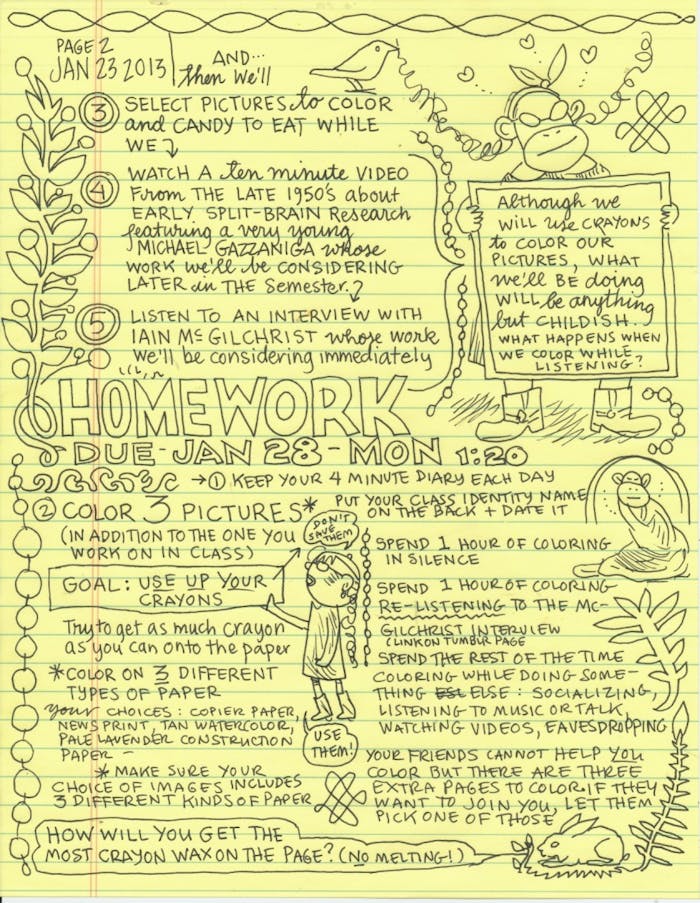 PAGE 2
JAN 23 2013
AND...
then we'll
③ SELECT PICTURES to COLOR
and CANDY TO EAT WHILE
WE
④ WATCH A ten minute VIDEO
From THE LATE 1950's about
EARLY SPLIT-BRAIN Research
featuring a very young
MICHAEL GAZZANIGA whose
WORK we'll be CONSIDERING
LATER in THE Semester.
⑤ LISTEN TO AN INTERVIEW WITH
IAIN McGILCHRIST whose work
We'll be considering immediately
Although we
WILL use CRAYONS
to COLOR OUR
PICTURES, WHAT
we'll BE doing
WILL be anything
but CHILDISH.
WHAT HAPPENS WHEN
WE COLOR WHILE
LISTENING?
HOMEWORK
DUE-JAN 28-MON 1:20
→① KEEP YOUR 4 MINUTE DIARY EACH DAY
② COLOR 3 PICTURES*
(IN ADDITION TO THE ONE YOU
WORK ON IN CLASS)
PUT YOUR CLASS IDENTITY NAME
ON THE BACK + DATE IT
DON'T
SAVE
THEM
GOAL: USE UP YOUR
CRAYONS
Try to get as much crayon
as you can onto the paper
*COLOR ON 3 DIFFERENT
TYPES OF PAPER
Your CHOICES: COPIER PAPER,
NEWSPRINT, TAN WATERCOLOR,
PALE LAVENDER CONSTRUCTION
PAPER —
* MAKE SURE YOUR
CHOICE OF IMAGES INCLUDES
3 DIFFERENT KINDS OF PAPER
USE
THEM!
SPEND 1 HOUR OF COLORING
IN SILENCE
SPEND 1 HOUR OF COLORING
RE-LISTENING TO THE MC-
GILCHRIST INTERVIEW
(LINK ON TUMBLR PAGE
SPEND THE REST OF THE TIME
COLORING WHILE DOING SOME-
THING ELSE: SOCIALIZING,
LISTENING TO MUSIC OR TALK,
WATCHING VIDEOS, EAVESDROPPING
YOUR FRIENDS CANNOT HELP YOU
COLOR BUT THERE ARE THREE
EXTRA PAGES TO COLOR. IF THEY
WANT TO JOIN YOU, LET THEM
PICK ONE OF THOSE
HOW WILL YOU GET THE
MOST CRAYON WAX ON THE PAGE? (NO MELTING!)